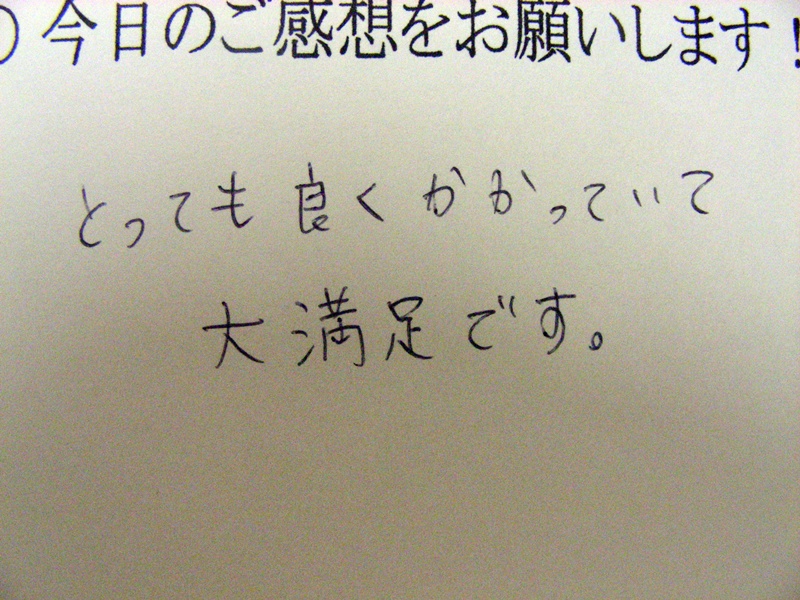 )今日のご感想をお願いします!
とっても良くかかっていて
大満足です。